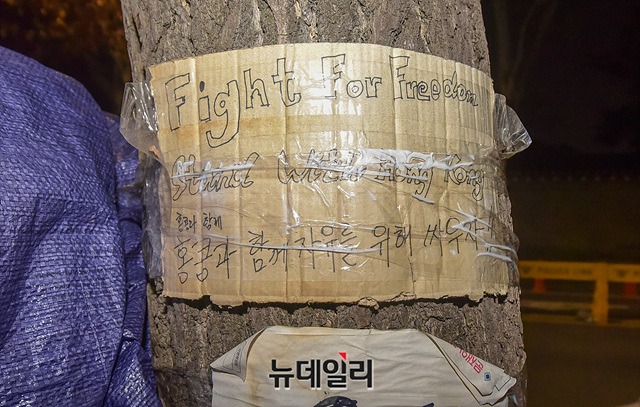 Fight For Freedom
Stand with Hong Kong
홍콩과 함께
홍콩과 함께 자유를 위해 싸우자
뉴데일리
POLICE LINE